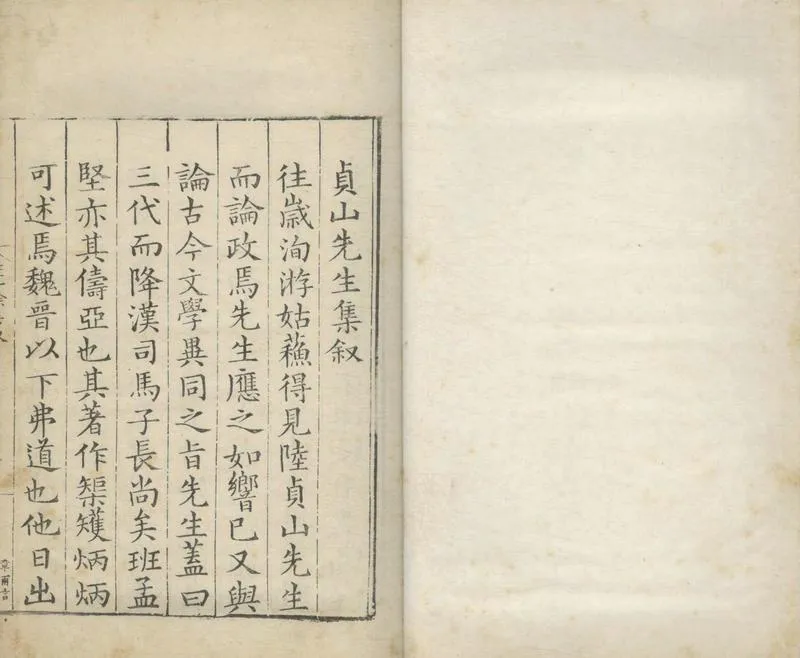 貞山先生集叙
往歳洵游姑蘓得見陸貞山先生
而論政焉先生應之如響已又與
論古今文學異同之旨先生蓋曰
三代而降漢司馬子長尚矣班孟
堅亦其儔亞也其著作榘矱炳炳
可述焉魏晋以下弗道也他日出
章甫言